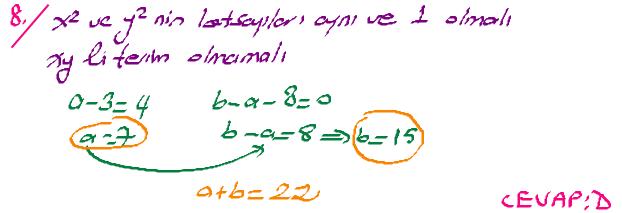 8./ x² ve y² nin katsayıları aynı ve 1 olmalı
xy li terim olmamalı
a-3=4 b-a-8=0
a=7 b-a=8 ⇒ b=15
a+b=22
CEVAP:D